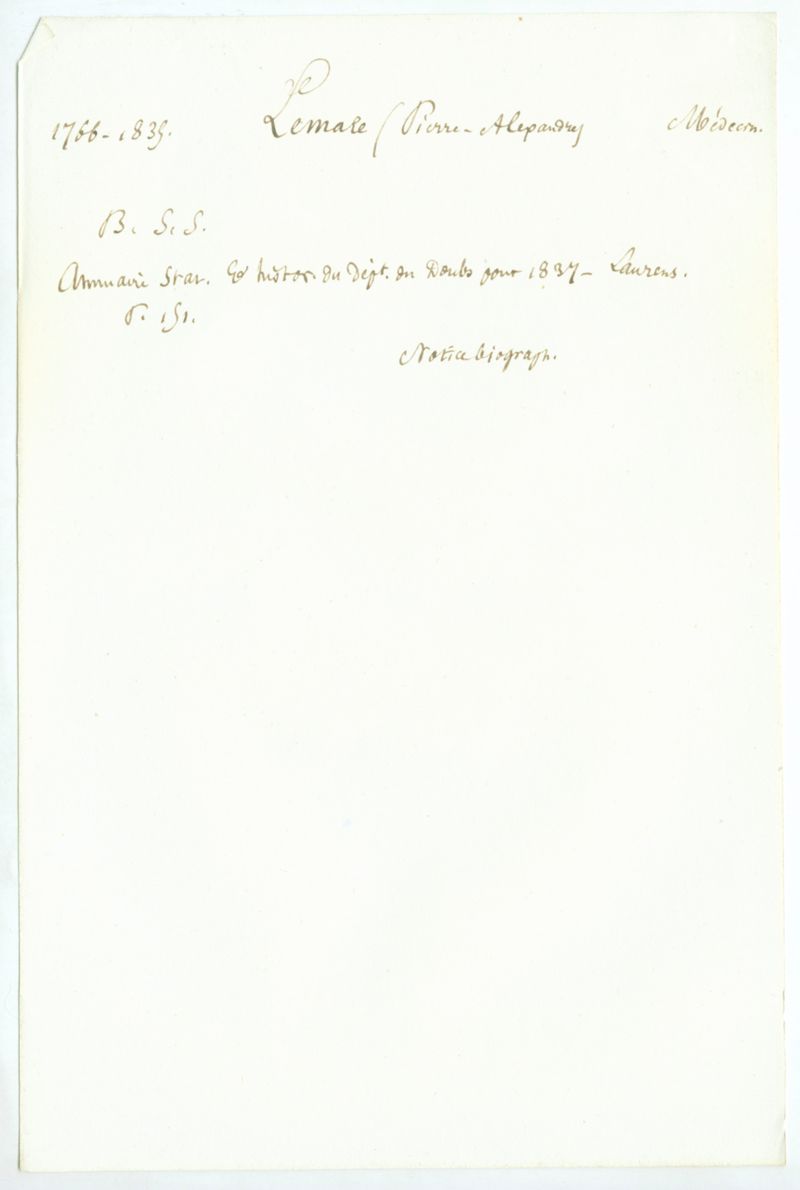 1766-1835. Lemare (Pierre-Alexandre) Médecin.
B. S. S.
Annuaire Stat. & histor. du Dépt. du Doubs pour 1837 - Laurens.
P. 151.
Notice biograph.